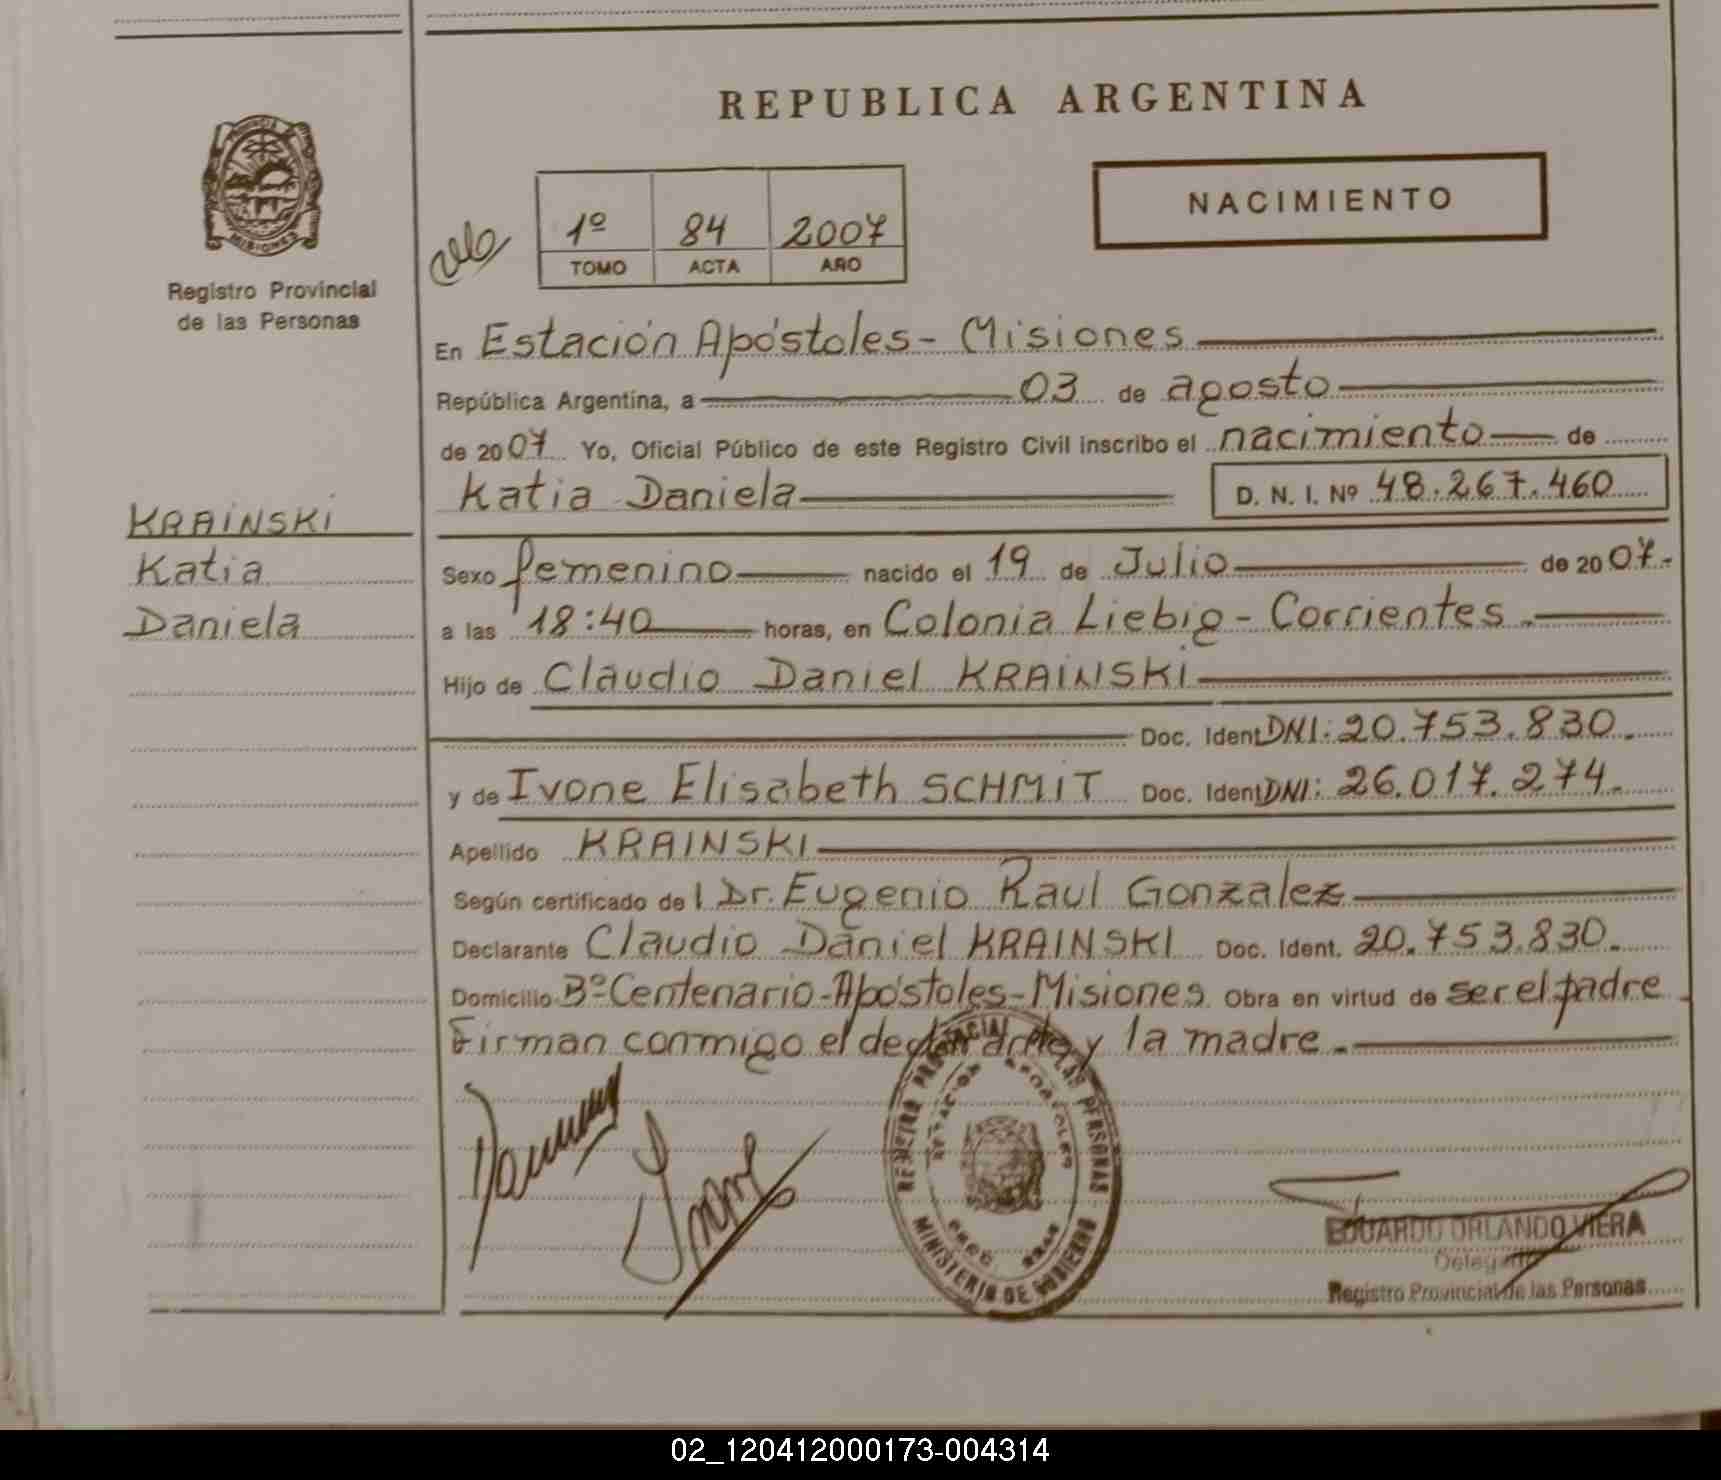 REPUBLICA ARGENTINA
PROVINCIA
MISIONES
Registro Provincial
de las Personas
1º 84 2007
TOMO ACTA AÑO
NACIMIENTO
En Estación Apóstoles - Misiones
República Argentina, a 03 de agosto
de 2007 Yo, Oficial Público de este Registro Civil inscribo el nacimiento de
Katia Daniela D. N. I. Nº 48.267.460
KRAINSKI
Katia
Daniela
Sexo femenino nacido el 19 de Julio de 2007.-
a las 18:40 horas, en Colonia Liebig - Corrientes.
Hijo de Claudio Daniel KRAINSKI
Doc. Ident DNI: 20.753.830.
y de Ivone Elisabeth SCHMIT Doc. Ident DNI: 26.017.274.
Apellido KRAINSKI
Según certificado del Dr. Eugenio Raul Gonzalez
Declarante Claudio Daniel KRAINSKI Doc. Ident. 20.753.830.
Domicilio Bº Centenario - Apóstoles - Misiones Obra en virtud de ser el padre
Firman conmigo el declarante y la madre.
REGISTRO PROVINCIAL DE LAS PERSONAS
ESTACION APOSTOLES
MINISTERIO DE GOBIERNO
EDUARDO ORLANDO VIERA
Delegado
Registro Provincial de las Personas
02_120412000173-004314